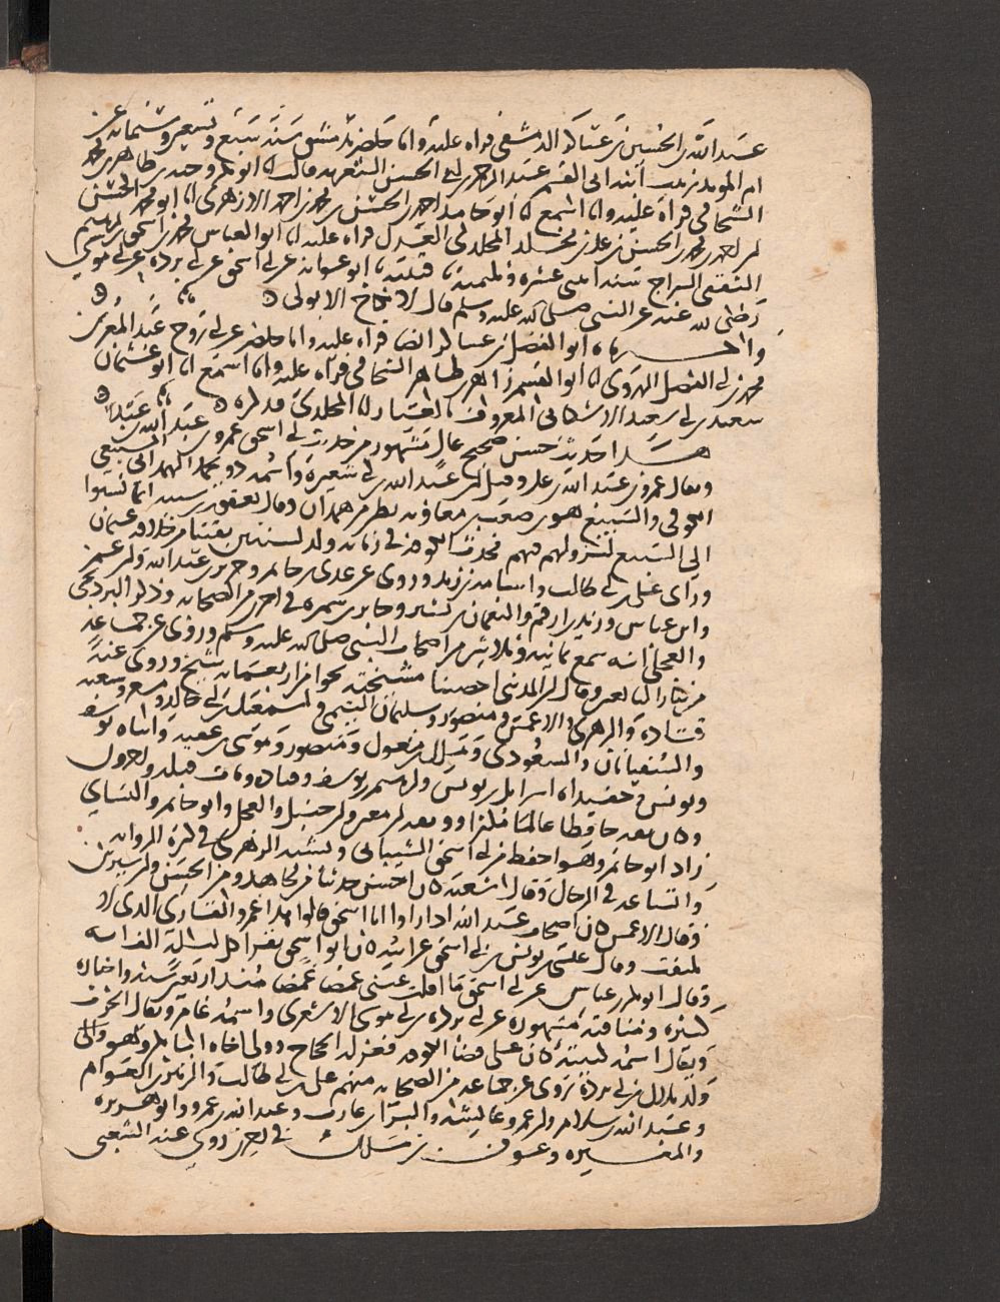 عبد الله الحسين بن عساكر الدمشقي قراه عليه وانا حاضر بدمشق سنه سبع وتسعين وستمايه عن
ام المويد زينب ابنه ابي القسم عبد الرحمن بن الحسن الشعريه قالت انا ابو بكر وجيه بن طاهر بن محمد
الشحامي قراه عليه وانا اسمع انا ابو حامد احمد بن الحسن بن محمد بن احمد الازهري انا ابو محمد الحسن
بن احمد بن محمد بن الحسن بن علي بن مخلد المخلدي العدل قراه عليه انا ابو العباس محمد بن اسحق بن ابرهيم
الثقفي السراج سنه اثنتي عشره وثلثمايه، قتيبه، ابو عوانه عن ابي اسحق عن ابي برده عن ابي موسى
رضي الله عنه عن النبي صلى الله عليه وسلم قال لا نكاح الا بولي
ابو الفضل بن عساكر ايضا قراه عليه وانا حاضر عن ابي روح عبد المعز بن
محمد بن ابي الفضل الهروي انا ابو القسم زاهر بن طاهر الشحامي قراه عليه وانا اسمع انا ابو عثمان
سعيد بن ابي سعيد الاشكابي المعروف بالعيار انا المخلدي فذكره
هذا حديث حسن صحيح عال مشهور من حديث ابي اسحق عمرو بن عبد الله بن عبيد
ويقال عمرو بن عبد الله بن علي وقيل بن عبد الله بن ابي شعيره واسمه ذو يحمد الهمداني السبيعي
الكوفي والسبيع هو بن صعب بن معاويه بطن من همدان وقال يعقوب بن شيبه انما نسبوا
الى السبيع لنزولهم فيهم محدث الكوفه في زمانه ولد لسنتين بقيتا من خلافه عثمان
وراى علي بن ابي طالب واسامه بن زيد وروى عن عدي بن حاتم وجرير بن عبد الله وابن عمر
وابن عباس وزيد بن ارقم والنعمان بن بشير وجابر بن سمره في اخرين من الصحابه وذكر البرديجي
والعجلي انه سمع ثمانيه وثلاثين من اصحاب النبي صلى الله عليه وسلم وروى عن جماعه
من كبار التابعين وقال بن المديني احصينا مشيخته نحوا من اربعمايه شيخ وروى عنه
قتاده والزهري والاعمش ومنصور وسليمان التيمي واسمعيل بن ابي خالد ومسعر وشعبه
والسفيانان والمسعودي ومالك بن مغول ومنصور وموسى بن عقبه وابناه يوسف
ويونس وحفيداه اسرايل بن يونس وابرهيم بن يوسف وقتاده ومات قبله واخرون
وكان ثقه حافظا عالما مكثرا ووثقه بن معين وابن حنبل والعجلي وابو حاتم والنساي
زاد ابو حاتم وهو احفظ من ابي اسحق الشيباني ويشبه الزهري في كثره الروايه
واتساعه في الرجال وقال شعبه كان احسن حديثا من مجاهد ومن الحسن وابن سيرين
وقال الاعمش كان اصحاب عبد الله اذا راوا ابا اسحق قالوا هذا عمرو القاري الذي لا
يلتفت وقال عيسى بن يونس بن ابي اسحق عن ابيه كان ابو اسحق يقرا كل ليله الف ايه
وقال ابو بكر بن عياش عن ابي اسحق ما اقلت عيني غمضا غمضا منذ اربعين سنه واخباره
كثيره ومناقبه مشهوره عن ابي برده بن ابي موسى الاشعري واسمه عامر ويقال الحرث
ويقال اسمه كنيته كان على قضا الكوفه فعزله الحجاج وولى اخاه ابا بكر وهو والد
ولد بلال بن ابي برده روى عن جماعه من الصحابه منهم علي بن ابي طالب والزبير بن العوام
وعبد الله بن سلام وابن عمر وعايشه والبرا بن عازب وعبد الله بن عمرو وابو هريره
والمغيره وعوف بن مالك في اخرين روى عنه الشعبي